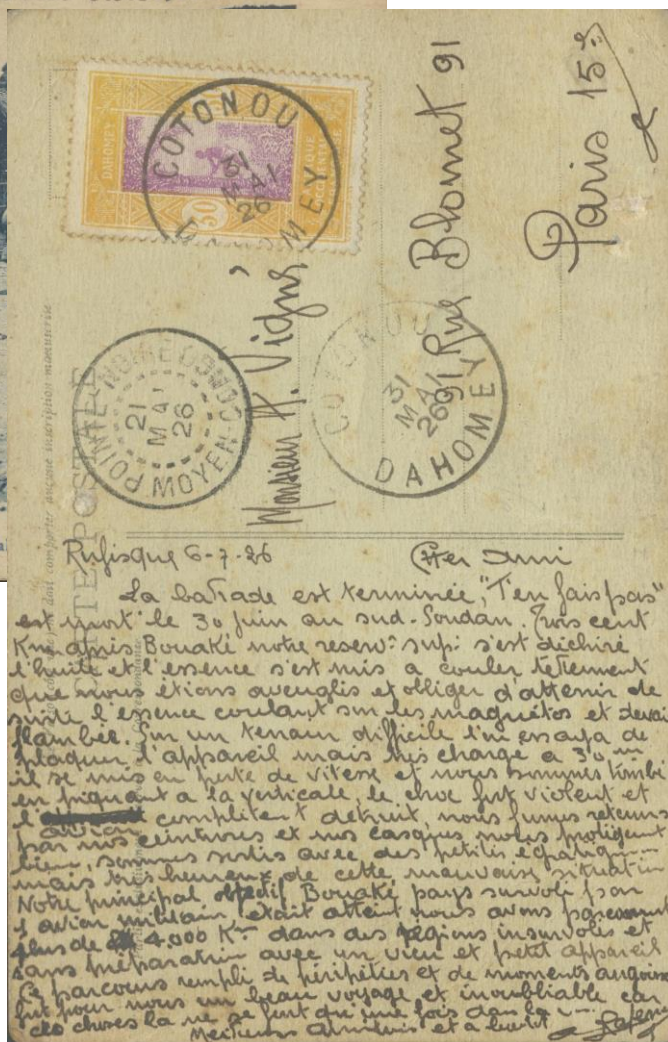 DAHOMEY
AFRIQUE
OCCIDENTALE
50
COTONOU
31
MAI
26
DAHOMEY
POINTE-NOIRE
21
MAI
26
MOYEN CONGO
COTONOU
31
MAI
26
DAHOMEY
Monsieur A. Vigné
91 Rue Blomet 91
Paris 15e
Rufisque 6-7-26 Cher Ami
La balade est terminée, "T'en fais pas"
est mort le 30 juin au sud-Soudan. Trois cent
Km après Bouaké notre reserv: sup: s'est déchiré
l'huile et l'essence s'est mis a couler tellement
que nous étions aveuglés et obliger d'atterrir de
suite l'essence coulant sur les magnétos et devait
flambée. Sur un terrain difficile l'on essaya de
plaquer l'appareil mais très chargé a 30m
il se mis en perte de vitesse et nous sommes tombé
en piquant a la verticale, le choc fut violent et
l'avion complètent détruit, nous fumes retenus
par nos ceintures et nos casques nous protigent
bien, sommes sortis avec des petites égratign
mais très heureux de cette mauvaise situation
Notre principal objectif Bouaké pays survolé par
l'avion militair, était atteint nous avons parcouru
plus de 4.000 Km dans des régions insurvolés et
sans préparation avec un vieu et petit appareil
Ce parcours rempli de péripéties et de moments angoiss
fut pour nous un beau voyage et inoubliable car
des choses la ne se font qu'une fois dans la v
Meilleurs Amitiés et a bientôt